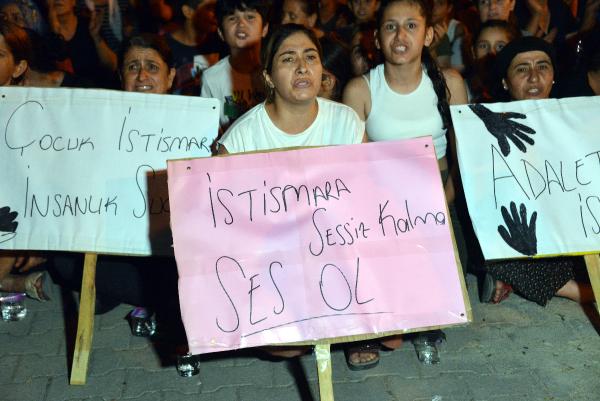 Çocuk İstismarı
İnsanlık
İstismara
Sessiz Kalma
Ses OL
Adalet